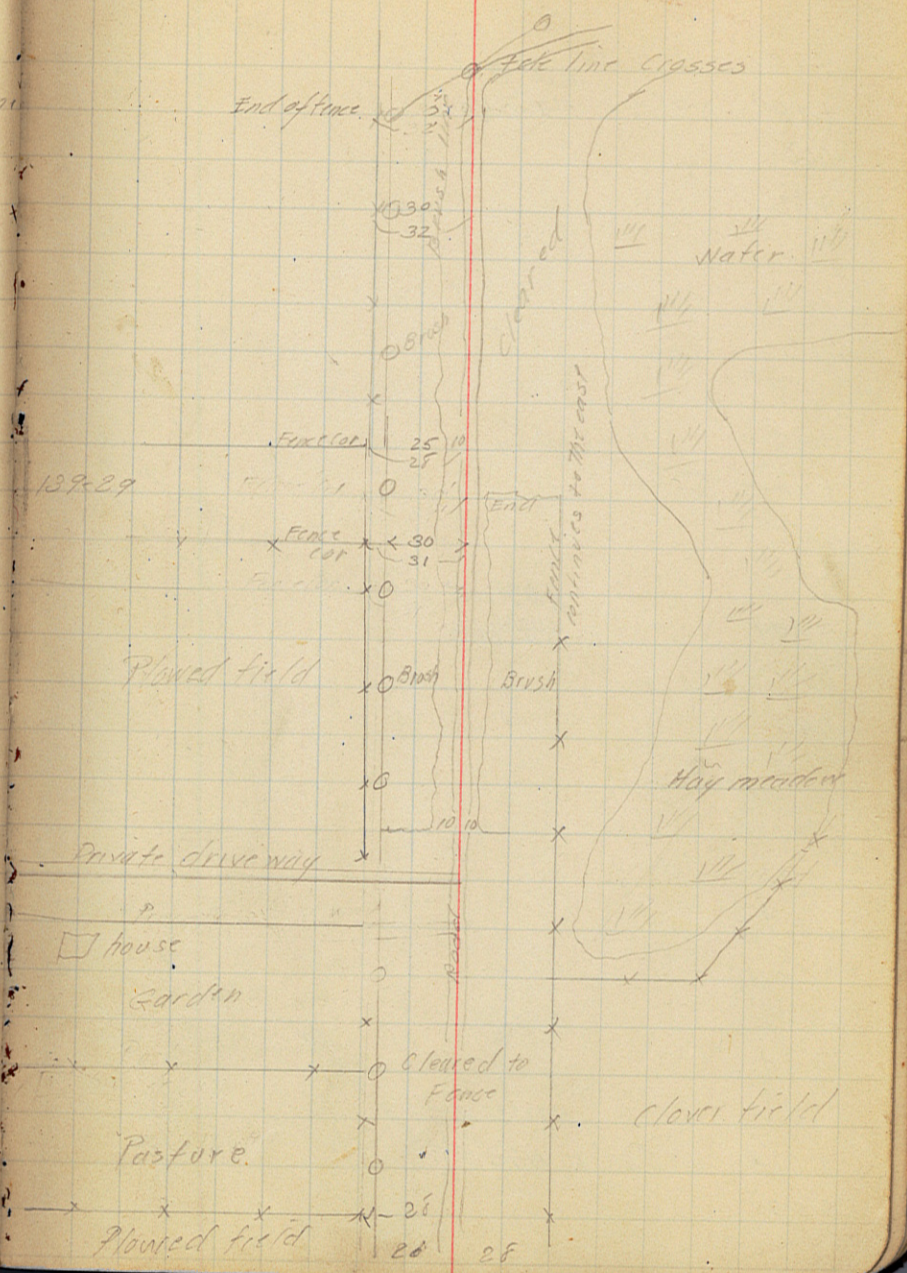 Tele line Crosses
End of fence
30
32
Brush line
Water
Cleared
Brush
Fence cor
25 10
28
139+29
End
Fence
cor
30
31
Fence
continues to the east
Plowed field
Brush
Brush
Hay meadow
10 10
Private driveway
house
Garden
Cleared to
Fence
Clover field
Pasture
26
Plowed field
26
28